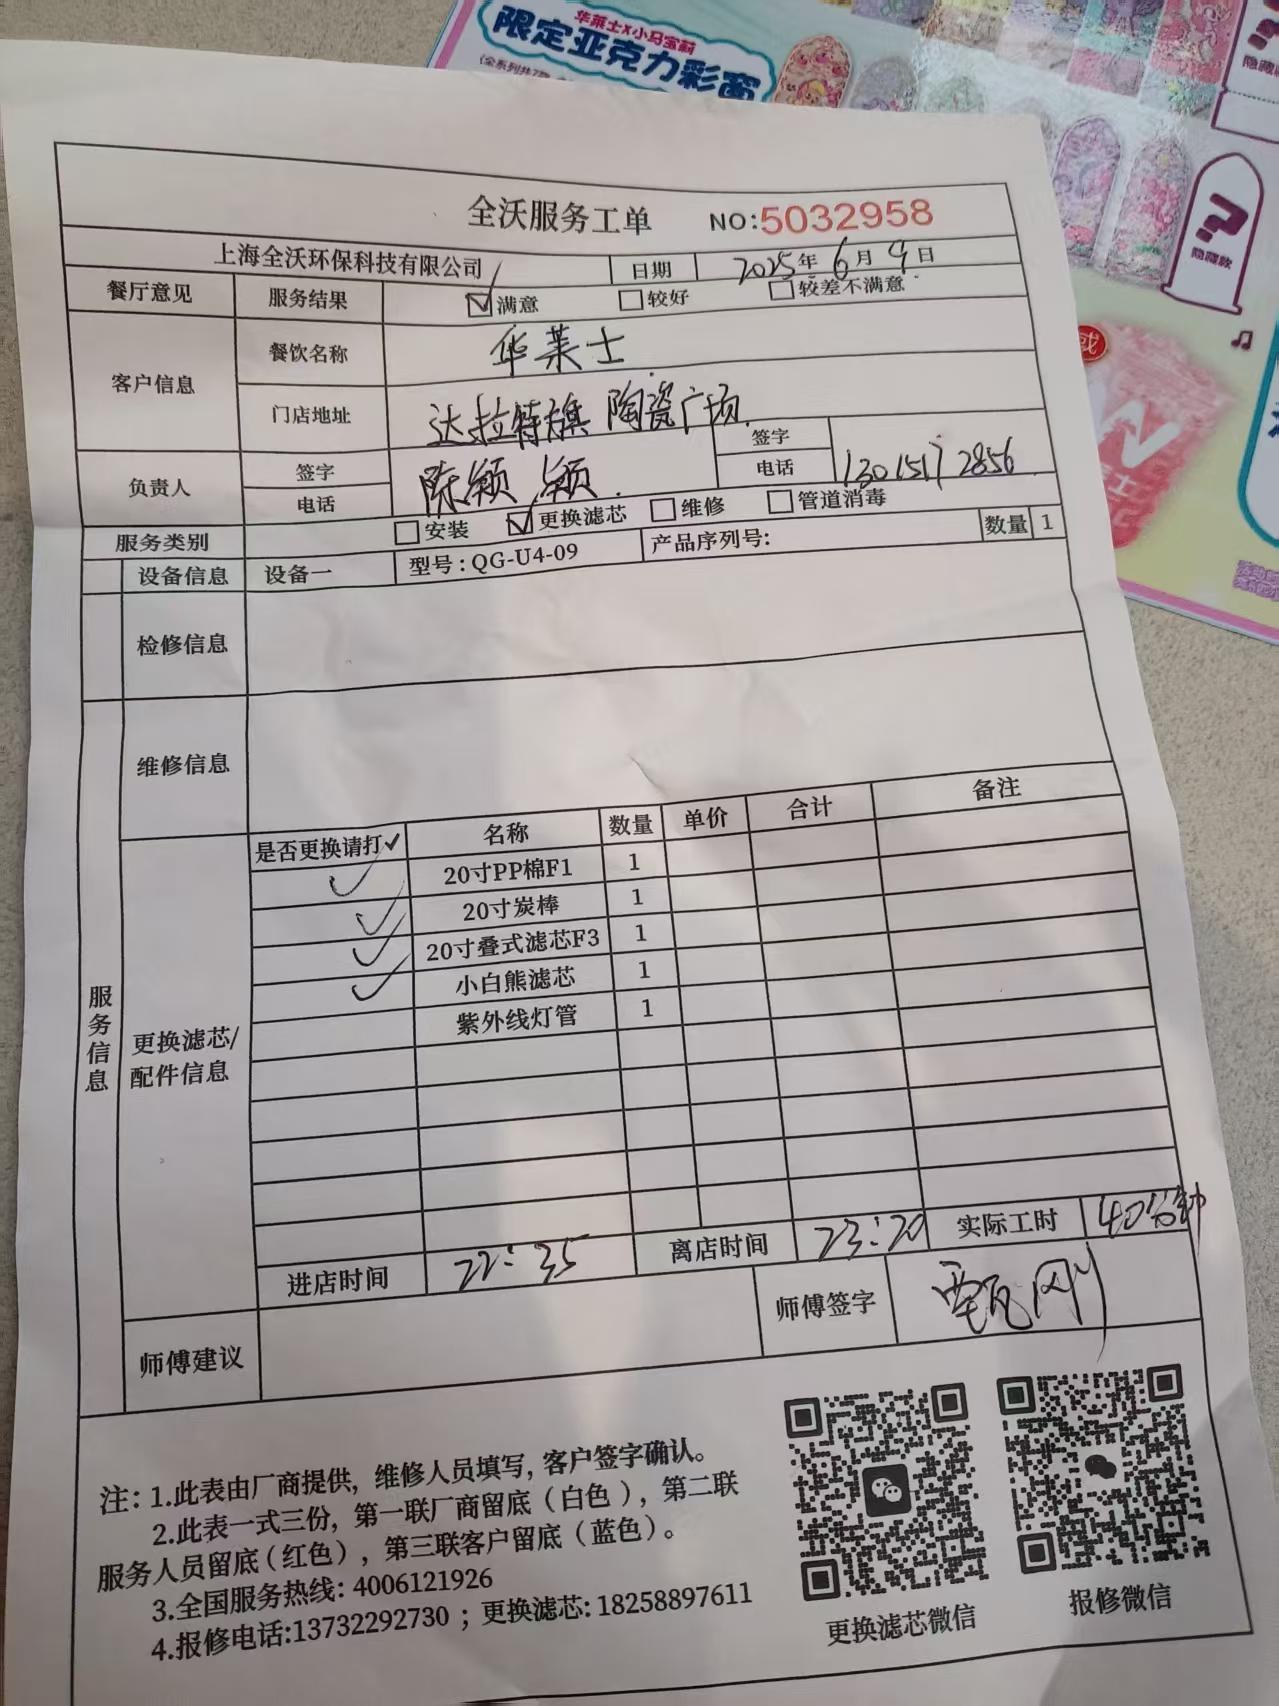 华莱士X小马宝莉
限定亚克力彩窗
隐藏款
全沃服务工单 NO:5032958
上海全沃环保科技有限公司 日期 2025年6月9日
餐厅意见 服务结果 ☑满意 □较好 □较差不满意
客户信息 餐饮名称 华莱士
门店地址 达拉特旗 陶瓷广场
负责人 签字 电话 陈颖颖 签字 电话 13015172856
服务类别 □安装 ☑更换滤芯 □维修 □管道消毒
设备信息 设备一 型号:QG-U4-09 产品序列号: 数量 1
检修信息
维修信息
服务信息
更换滤芯/配件信息
是否更换请打✓ 名称 数量 单价 合计 备注
✓ 20寸PP棉F1 1
✓ 20寸炭棒 1
✓ 20寸叠式滤芯F3 1
✓ 小白熊滤芯 1
紫外线灯管 1
进店时间 22:35 离店时间 23:20 实际工时 40分钟
师傅建议 师傅签字 甄刚
注:1.此表由厂商提供,维修人员填写,客户签字确认。
2.此表一式三份,第一联厂商留底(白色),第二联
服务人员留底(红色),第三联客户留底(蓝色)。
3.全国服务热线:4006121926
4.报修电话:13732292730;更换滤芯:18258897611
更换滤芯微信 报修微信